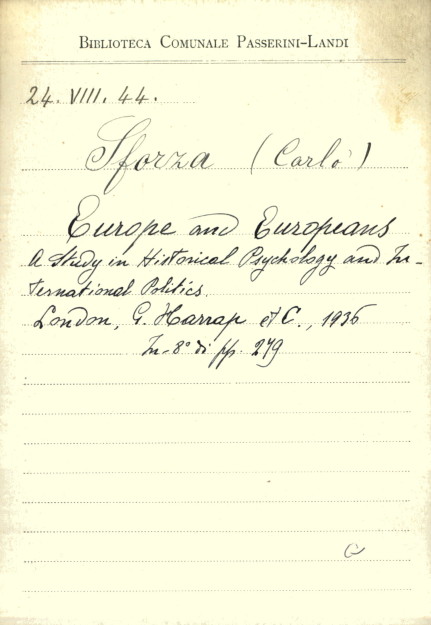 BIBLIOTECA COMUNALE PASSERINI-LANDI
24. VIII. 44.
Sforza (Carlo)
Europe and Europeans
A Study in Historical Psychology and In-
ternational Politics.
London, G. Harrap et C., 1936
In-8° di pp. 279